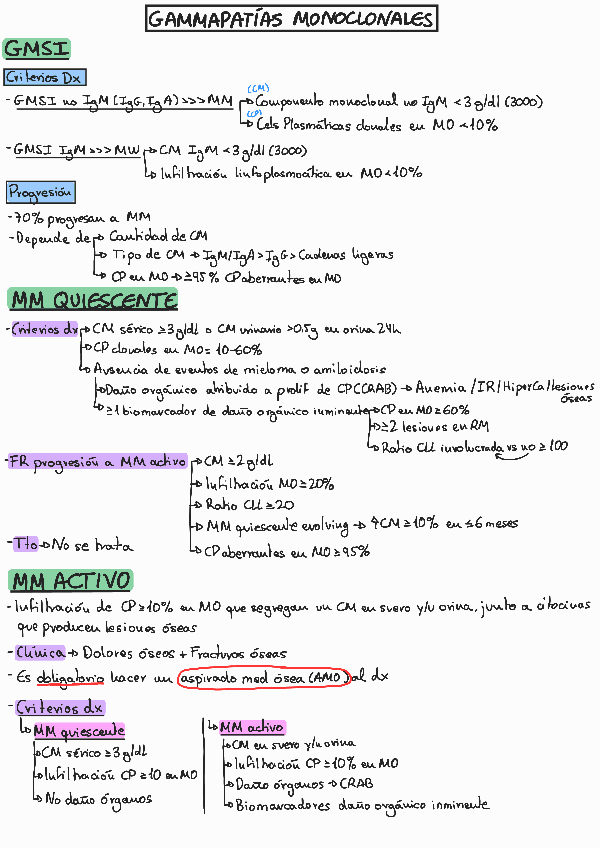 GAMMAPATÍAS MONOCLONALES
GMSI
Criterios Dx
- GMSI no IgM (IgG, IgA) >>> MM → (CM) Componente monoclonal no IgM < 3 g/dl (3000)
→ (CP) Cels Plasmáticas clonales en MO < 10%
- GMSI IgM >>> MW → CM IgM < 3 g/dl (3000)
→ Infiltración linfoplasmocítica en MO < 10%
Progresión
- 70% progresan a MM
- Depende de → Cantidad de CM
→ Tipo de CM → IgM/IgA > IgG > Cadenas ligeras
→ CP en MO → ≥95% CP aberrantes en MO
MM QUIESCENTE
- Criterios dx → CM sérico ≥ 3 g/dl o CM urinario > 0.5 g en orina 24h
→ CP clonales en MO = 10-60%
→ Ausencia de eventos de mieloma o amiloidosis
→ Daño orgánico atribuido a prolif de CP (CRAB) → Anemia / IR / HiperCa / lesiones óseas
→ ≥1 biomarcador de daño orgánico inminente → CP en MO ≥ 60%
→ ≥2 lesiones en RM
→ Ratio CLL involucrada vs no ≥ 100
- FR progresión a MM activo → CM ≥ 2 g/dl
→ Infiltración MO ≥ 20%
→ Ratio CLL ≥ 20
→ MM quiescente evolving → ↑CM ≥ 10% en ≤ 6 meses
- Tto → No se trata
→ CP aberrantes en MO ≥ 95%
MM ACTIVO
- Infiltración de CP ≥ 10% en MO que segregan un CM en suero y/u orina, junto a citocinas
que producen lesiones óseas
- Clínica → Dolores óseos + Fracturas óseas
- Es obligatorio hacer un aspirado med ósea (AMO) al dx
- Criterios dx
→ MM quiescente
→ CM sérico ≥ 3 g/dL
→ Infiltración CP ≥ 10 en MO
→ No daño órganos
→ MM activo
→ CM en suero y/u orina
→ Infiltración CP ≥ 10% en MO
→ Daño órganos → CRAB
→ Biomarcadores daño orgánico inminente